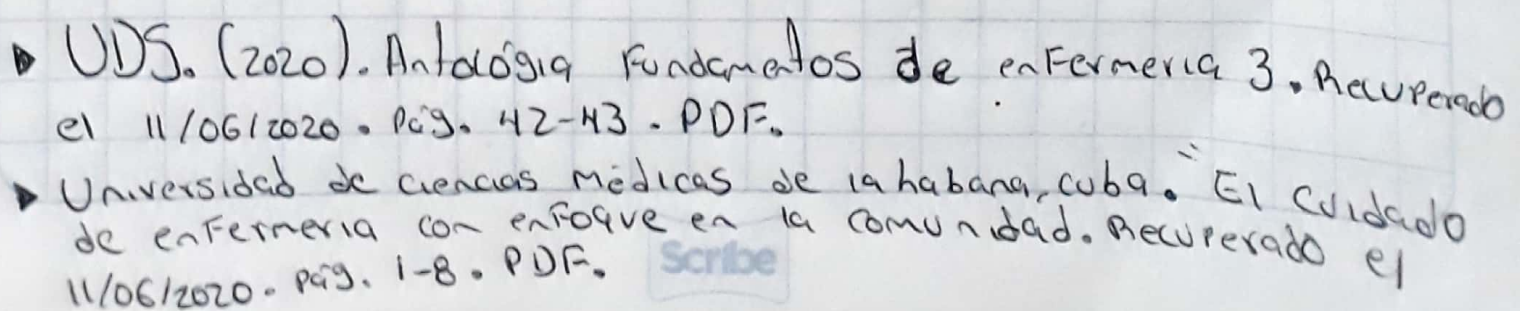 ▸ UDS. (2020). Antológia Fundamentos de enfermeria 3. Recuperado
el 11/06/2020. Pág. 42-43. PDF.
▸ Universidad de ciencias médicas de la habana, cuba. " El cuidado
de enfermeria con enfoque en la comunidad. Recuperado el
11/06/2020. pág. 1-8. PDF.
Scribe